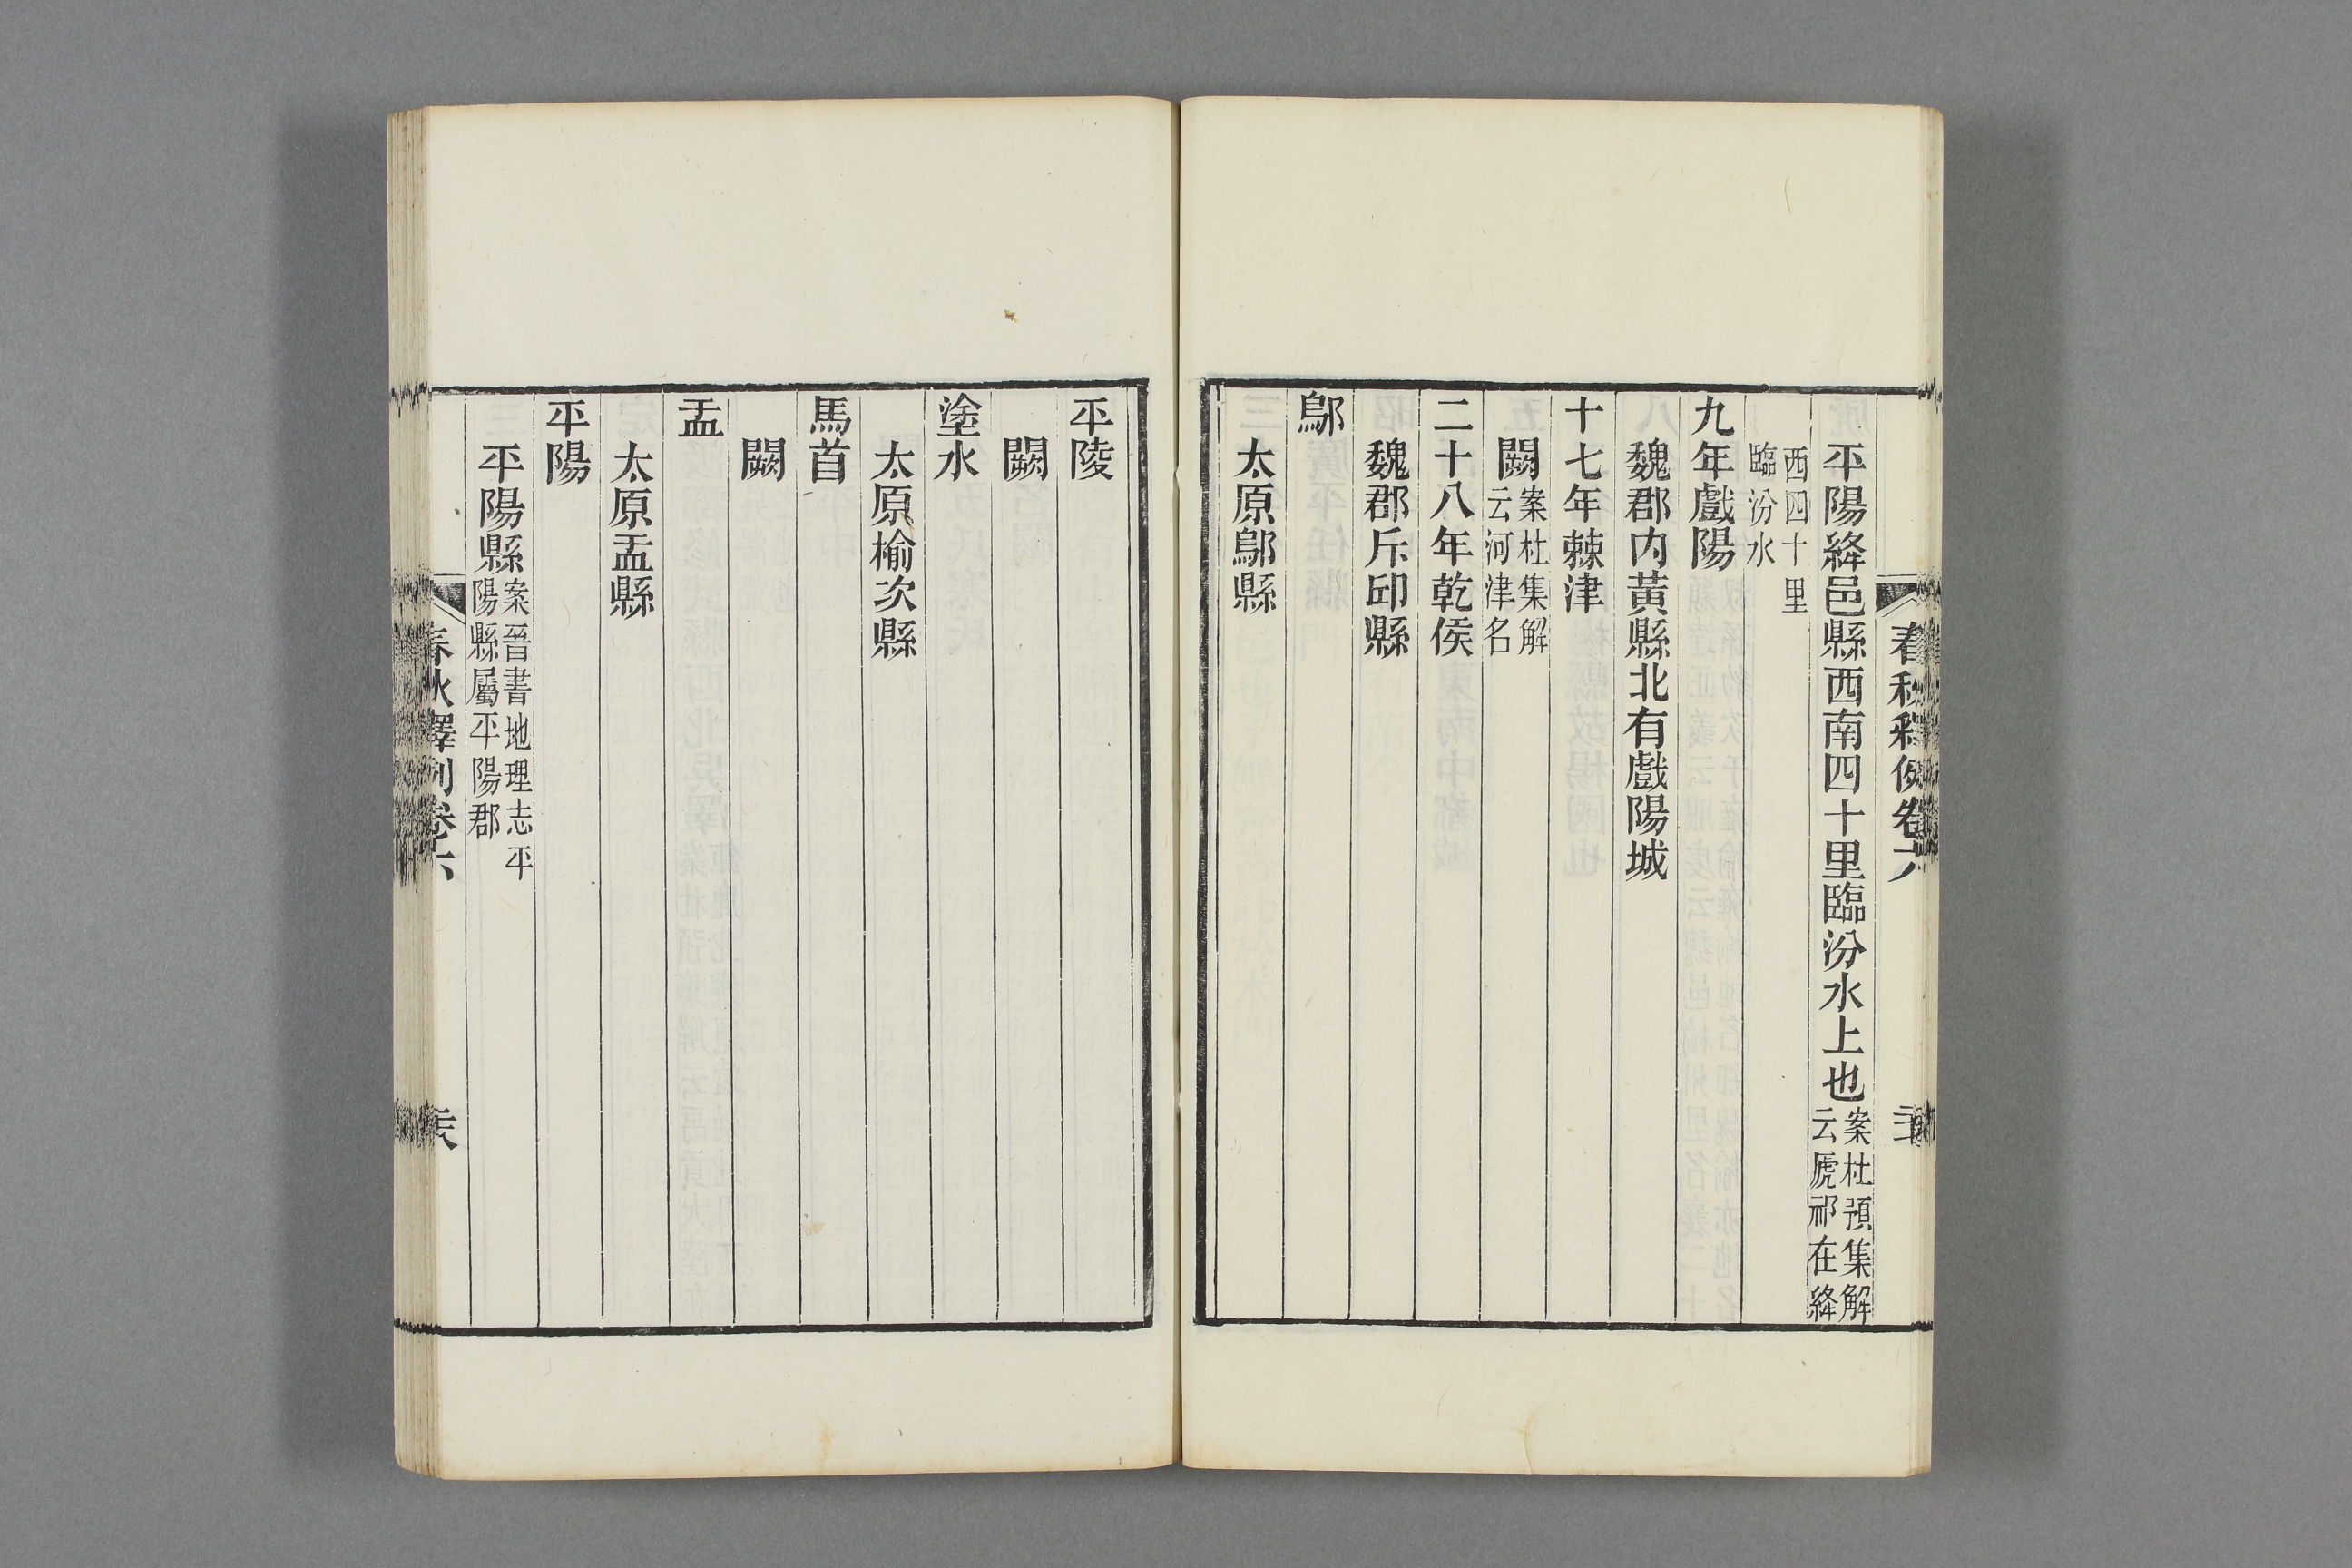 平陽絳邑縣西南四十里臨汾水上也案杜預集解云虒祁在絳
西四十里臨汾水
九年戲陽
魏郡内黃縣北有戲陽城
十七年棘津
闕案杜集解云河津名
二十八年乾侯
魏郡斥邱縣
鄔
太原鄔縣
平陵
闕
塗水
太原榆次縣
馬首
闕
盂
太原盂縣
平陽
平陽縣案晉書地理志平陽縣屬平陽郡
春秋釋例卷六